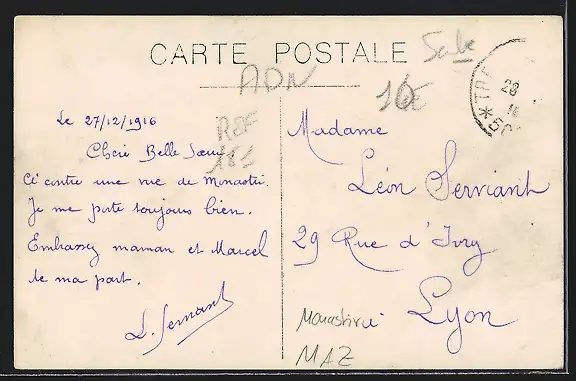 CARTE POSTALE
ADN
16€
REF
Le 27/12/1916
Chère Belle Sœur
Ci contre une vue de Monastir.
Je me porte toujours bien.
Embrassez maman et Marcel
de ma part.
L. Servant
Madame
Léon Serviant
29 Rue d'Ivry
Lyon
MAZ
TRE
28
16
*50